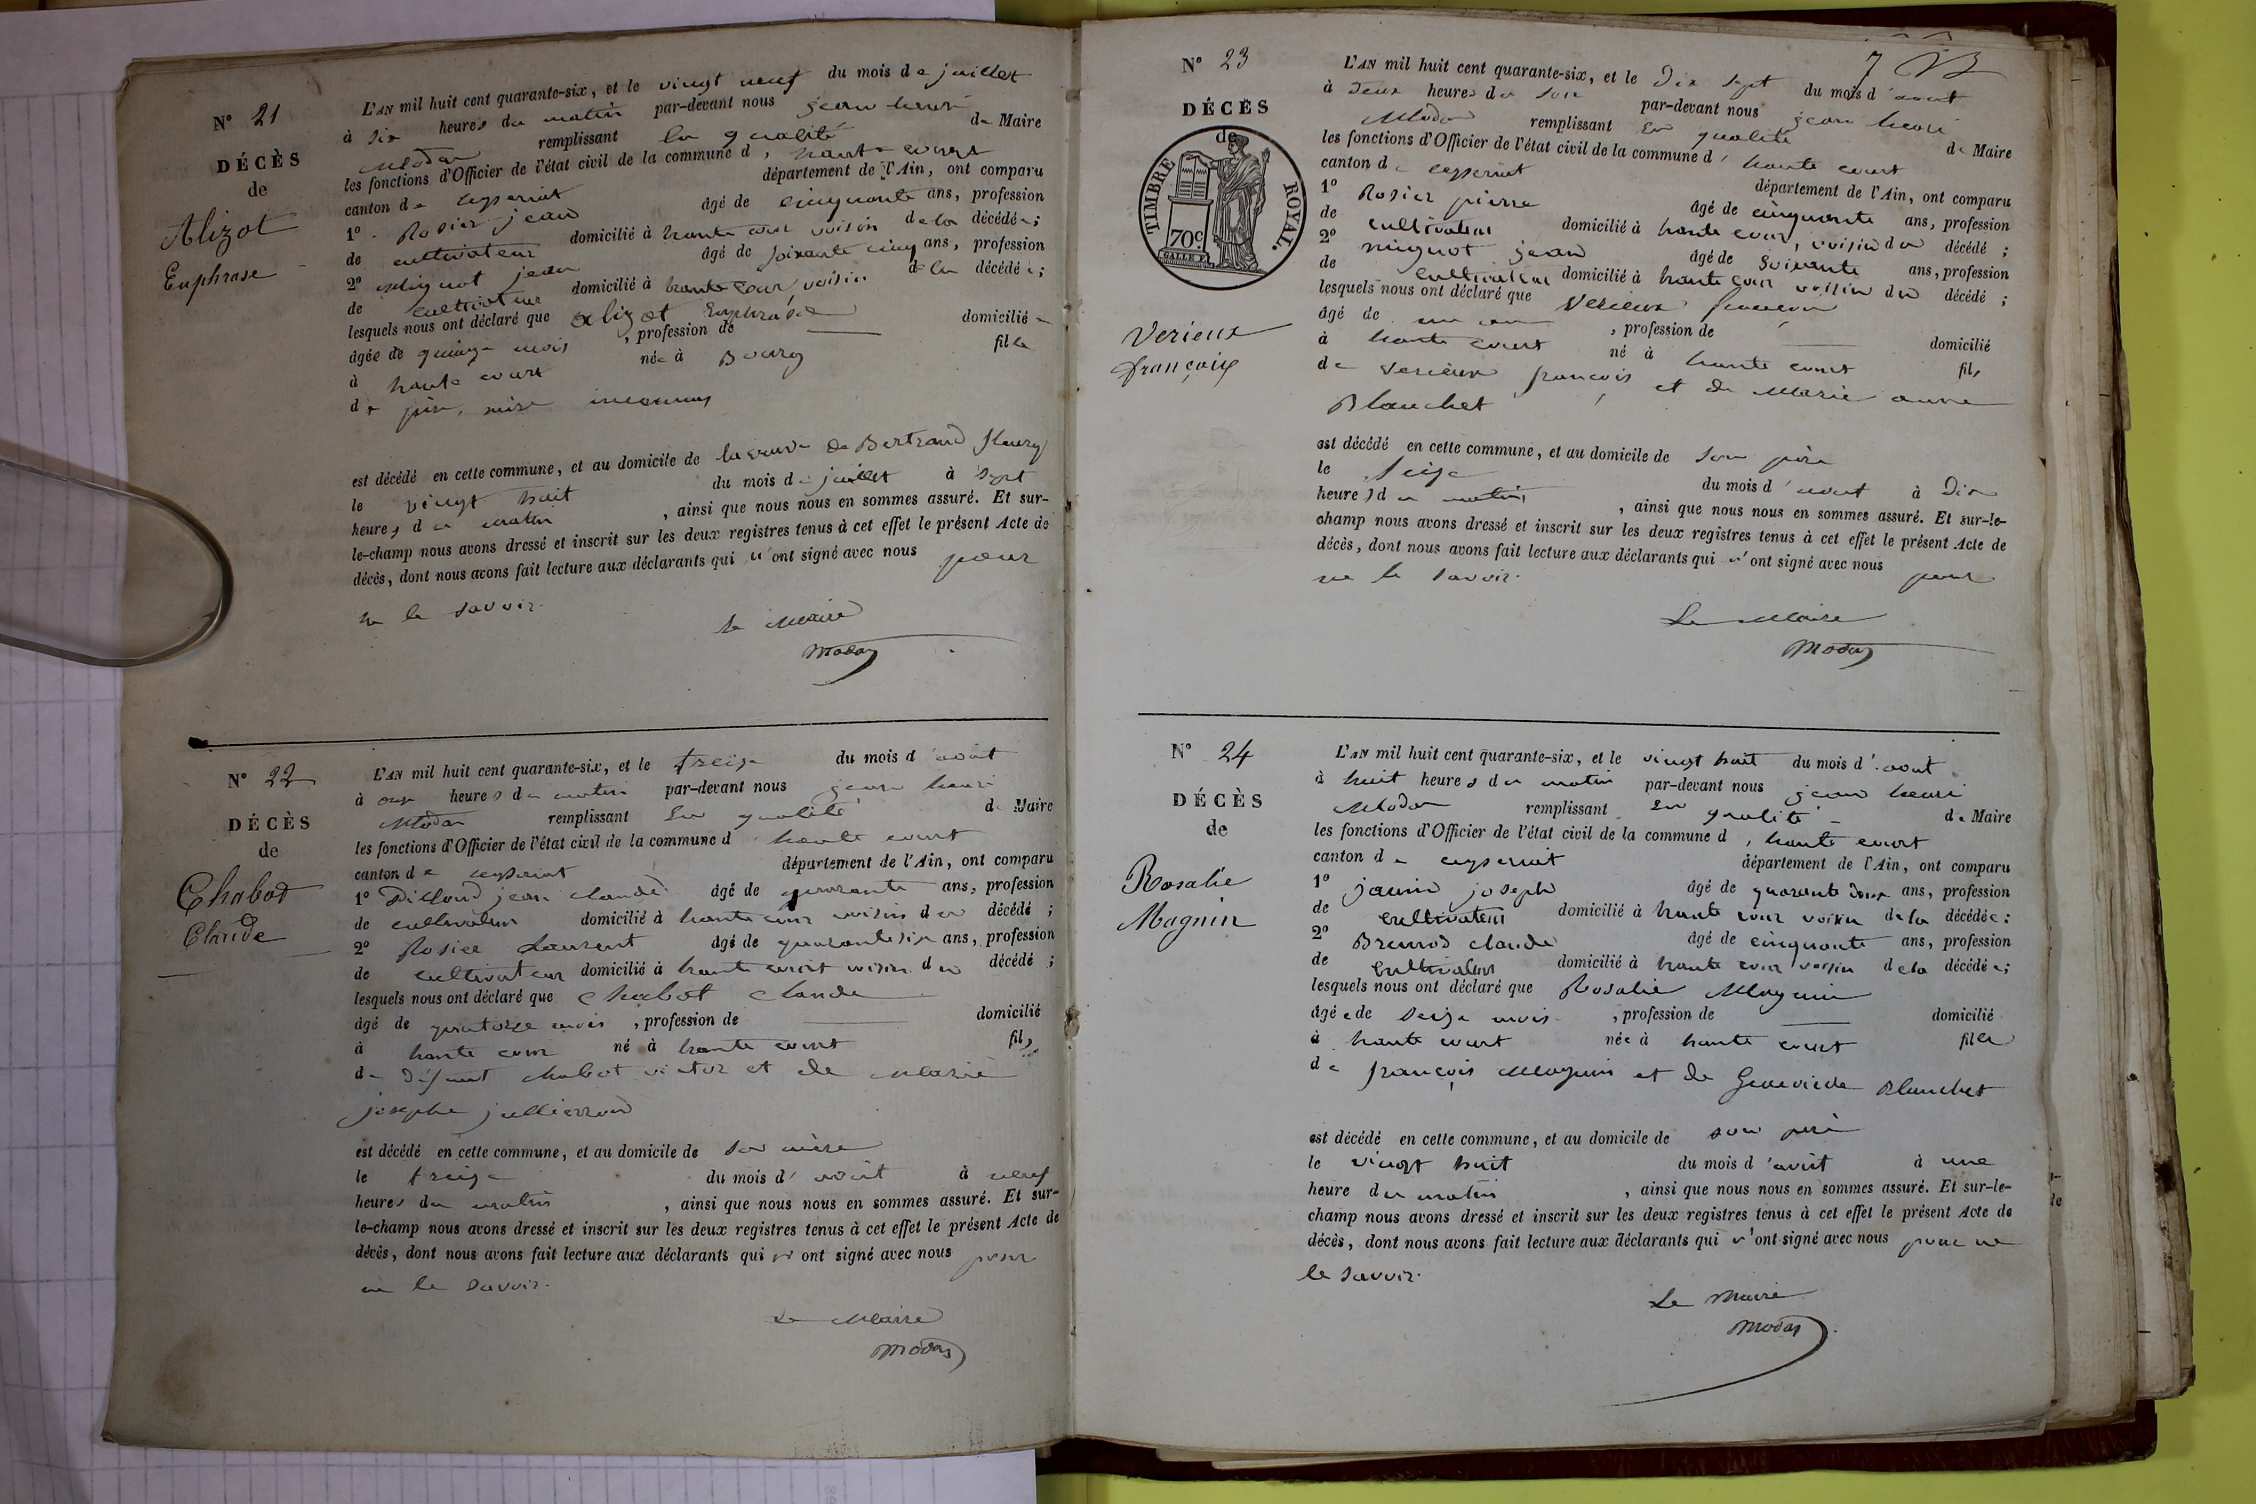 N° 21
DÉCÈS
de
Alizot
Euphrasie
L'AN mil huit cent quarante-six, et le vingt neuf du mois de juillet
à six heures du matin par-devant nous jean henri
Modas remplissant en qualité de Maire
les fonctions d'Officier de l'état civil de la commune d'haute court
canton de ceyseriat département de l'Ain, ont comparu
1° Rosier jean âgé de cinquante ans, profession
de cultivateur domicilié à haute cour voisin de la décédée;
2° mignot jean âgé de soixante cinq ans, profession
de cultivateur domicilié à haute cour voisin de la décédée;
lesquels nous ont déclaré que alizot Euphrasie
âgée de quinze mois, profession de domiciliée
à haute court née à Bourg fille
de père, mère inconnus
est décédé en cette commune, et au domicile de la veuve de Bertrand fleury
le vingt huit du mois de juillet à sept
heures du matin, ainsi que nous nous en sommes assuré. Et sur-
le-champ nous avons dressé et inscrit sur les deux registres tenus à cet effet le présent Acte de
décès, dont nous avons fait lecture aux déclarants qui n'ont signé avec nous pour
ne le savoir.
le Maire
Modas
N° 22
DÉCÈS
de
Chabot
Claude
L'AN mil huit cent quarante-six, et le treize du mois d'aout
à onze heures du matin par-devant nous jean henri
Modas remplissant en qualité de Maire
les fonctions d'Officier de l'état civil de la commune d'haute court
canton de ceyseriat département de l'Ain, ont comparu
1° jean claude âgé de quarante ans, profession
de cultivateur domicilié à haute cour voisin du décédé;
2° Rosier Laurent âgé de quarante six ans, profession
de cultivateur domicilié à haute court voisin du décédé;
lesquels nous ont déclaré que Chabot Claude
âgé de quatorze mois, profession de domicilié
à haute cour né à haute court fils
de défunt chabot victor et de Marie
josephe jullierron
est décédé en cette commune, et au domicile de sa mère
le treize du mois d'aout à neuf
heures du matin, ainsi que nous nous en sommes assuré. Et sur-
le-champ nous avons dressé et inscrit sur les deux registres tenus à cet effet le présent Acte de
décès, dont nous avons fait lecture aux déclarants qui n'ont signé avec nous pour
ne le savoir.
Le Maire
Modas
7
N° 23
DÉCÈS
de
TIMBRE ROYAL.
70c.
Verieux
françois
L'AN mil huit cent quarante-six, et le Dix sept du mois d'aout
à deux heures du soir par-devant nous jean henri
Modas remplissant En qualité de Maire
les fonctions d'Officier de l'état civil de la commune d'haute court
canton de ceyseriat département de l'Ain, ont comparu
1° Rosier pierre âgé de cinquante ans, profession
de cultivateur domicilié à haute cour, voisin du décédé;
2° mignot jean âgé de soixante ans, profession
de cultivateur domicilié à haute cour voisin du décédé;
lesquels nous ont déclaré que Verieux françois
âgé de un an, profession de domicilié
à haute court né à haute court fils
de verieux françois et de Marie anne
Blanchet
est décédé en cette commune, et au domicile de son père
le seize du mois d'aout à Dix
heures du matin, ainsi que nous nous en sommes assuré. Et sur-le-
champ nous avons dressé et inscrit sur les deux registres tenus à cet effet le présent Acte de
décès, dont nous avons fait lecture aux déclarants qui n'ont signé avec nous pour
ne le savoir.
Le Maire
Modas
N° 24
DÉCÈS
de
Rosalie
Magnin
L'AN mil huit cent quarante-six, et le vingt huit du mois d'aout
à huit heures du matin par-devant nous jean henri
Modas remplissant En qualité de Maire
les fonctions d'Officier de l'état civil de la commune d'haute court
canton de ceyseriat département de l'Ain, ont comparu
1° joseph âgé de quarante deux ans, profession
de cultivateur domicilié à haute cour voisin de la décédée;
2° claude âgé de cinquante ans, profession
de cultivateur domicilié à haute cour voisin de la décédée;
lesquels nous ont déclaré que Rosalie Magnin
âgée de seize mois, profession de domicilié
à haute court née à haute court fille
de françois Magnin et de Genevieve Blanchet
est décédé en cette commune, et au domicile de son père
le vingt huit du mois d'aout à une
heure du matin, ainsi que nous nous en sommes assuré. Et sur-le-
champ nous avons dressé et inscrit sur les deux registres tenus à cet effet le présent Acte de
décès, dont nous avons fait lecture aux déclarants qui n'ont signé avec nous pour ne
le savoir.
Le Maire
Modas